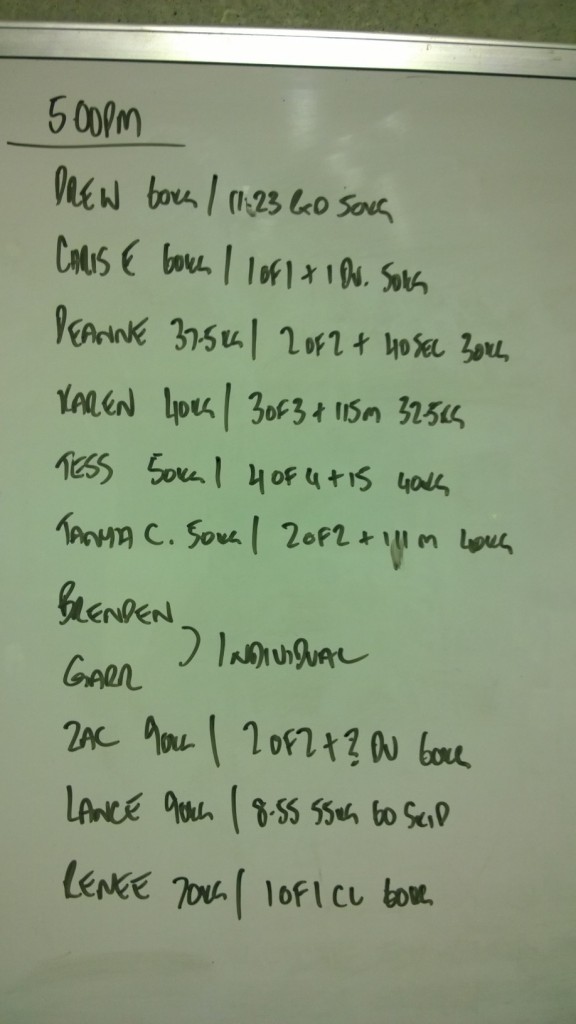 500PM
DREW 60KG / 11.23 50KG
CHRIS E 60KG / 1 OF 1 + 1 DU. 50KG
DEANNE 37.5KG / 2 OF 2 + 40 SEC 30KG
KAREN 40KG / 3 OF 3 + 115M 32.5KG
TESS 50KG / 4 OF 4 + 15 40KG
C. 50KG / 2 OF 2 + 111 M 40KG
BRENDEN
) INDIVIDUAL
GARR
ZAC 90KG / 2 OF 2 + ? DU 60KG
LANCE 90KG / 8.55 55KG 60 SKIP
RENEE 70KG / 1 OF 1 CL 60KG